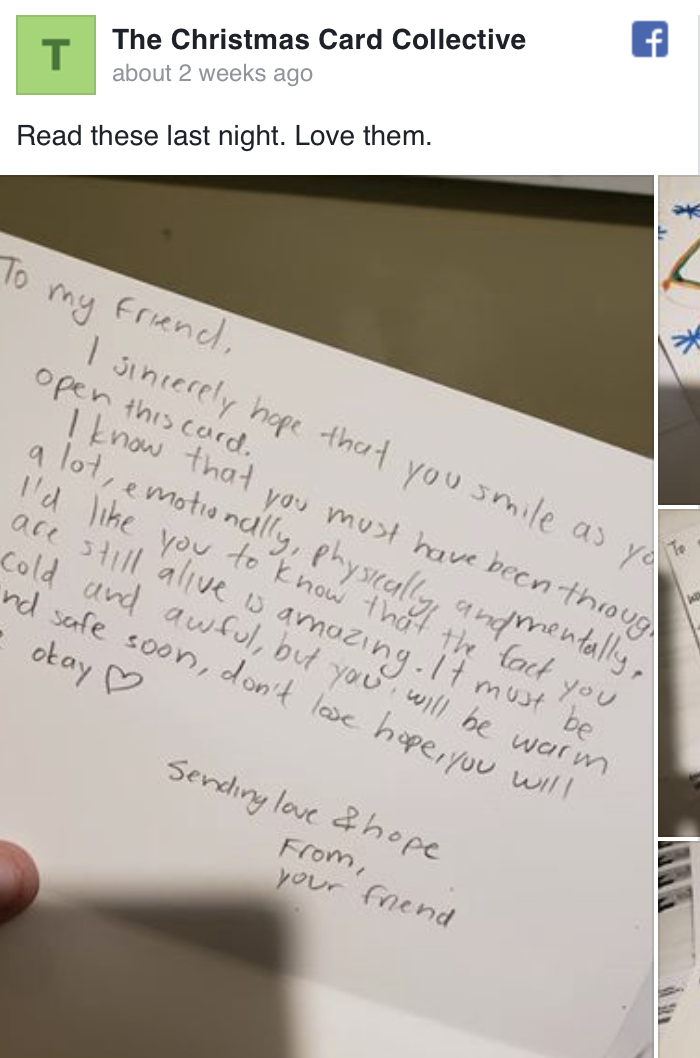 T
The Christmas Card Collective
about 2 weeks ago
Read these last night. Love them.
To my Friend,
I sincerely hope that you smile as yo
open this card.
I know that you must have been throug
a lot, emotionally, physically, and mentally,
I'd like you to know that the fact you
are still alive is amazing. It must be
cold and awful, but you will be warm
nd safe soon, don't lose hope, you will
e okay ♡
Sending love & hope
From,
your friend
To